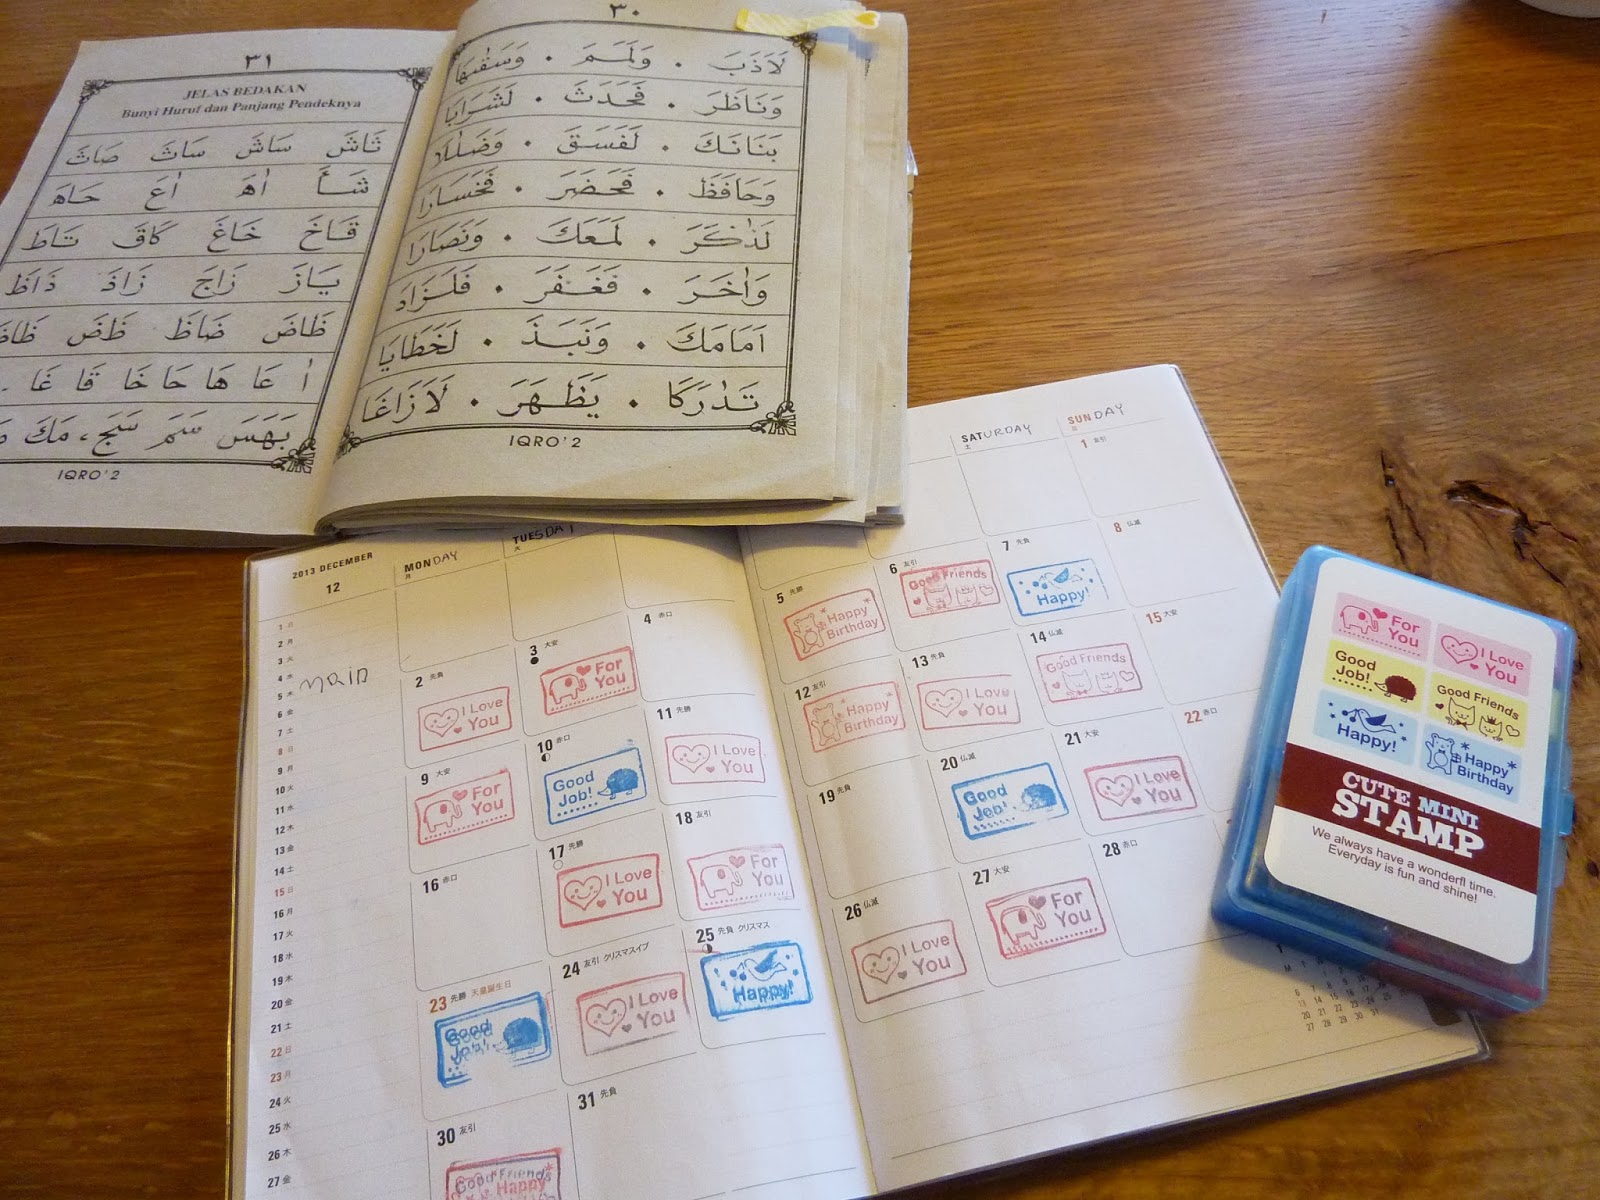 ٣١
JELAS BEDAKAN
Bunyi Huruf dan Panjang Pendeknya
ثَاشَ سَاشَ سَاثَ صَاثَ
شَأَ اٰهَ اٰعَ حَاهَ
قَاخَ خَاغَ كَاقَ تَاطَ
يَازَ زَاجَ زَاذَ ذَاظَ
ظَاضَ ضَاظَ ظَضَ
اٰ عَا هَا حَا خَا قَا غَا
بَهَسَ سَمَ سَجَ، مَكَ
IQRO' 2
٣٠
لَاَذَبَ . وَلَمَمَ . وَسَقٰىهَا
وَنَاظَرَ . فَحَدَثَ . لَشَرَابَا
بَنَانَكَ . لَفَسَقَ . وَضَلٰلَا
وَحَافَظَ . فَحَضَرَ . فَخَسَارَا
لَذٰكَرَ . لَمَعَكَ . وَنَصَارَا
وَاٰخَرَ . فَغَفَرَ . فَلَزَادَ
اَمَامَكَ . وَنَبَذَ . لَخَطَايَا
تَدٰرَكَا . يَظَهَرَ . لَازَاغَا
IQRO' 2
2013 DECEMBER
12
MONDAY
月
TUESDAY
火
SATURDAY
土
SUNDAY
日
1 日
2 月
3 火
4 水
5 木
6 金
7 土
8 日
9 月
10 火
11 水
12 木
13 金
14 土
15 日
16 月
17 火
18 水
19 木
20 金
21 土
22 日
23 月
24 火
25 水
26 木
27 金
1 友引
2 先負
I Love You
3 大安
For You
4 赤口
5 先勝
Happy Birthday
6 友引
Good Friends
7 先負
Happy!
8 仏滅
9 大安
For You
10 赤口
Good Job!
11 先勝
I Love You
12 友引
Happy Birthday
13 先負
I Love You
14 仏滅
Good Friends
15 大安
16 赤口
17 先勝
I Love You
18 友引
For You
19 先負
20 仏滅
Good Job!
21 大安
I Love You
22 赤口
23 先勝 天皇誕生日
Good Job!
24 友引 クリスマスイブ
I Love You
25 先負 クリスマス
Happy!
26 仏滅
I Love You
27 大安
For You
28 赤口
30 友引
Good Friends
Happy
31 先負
For You
I Love You
Good Job!
Good Friends
Happy!
Happy Birthday
CUTE MINI
STAMP
We always have a wonderfl time.
Everyday is fun and shine!